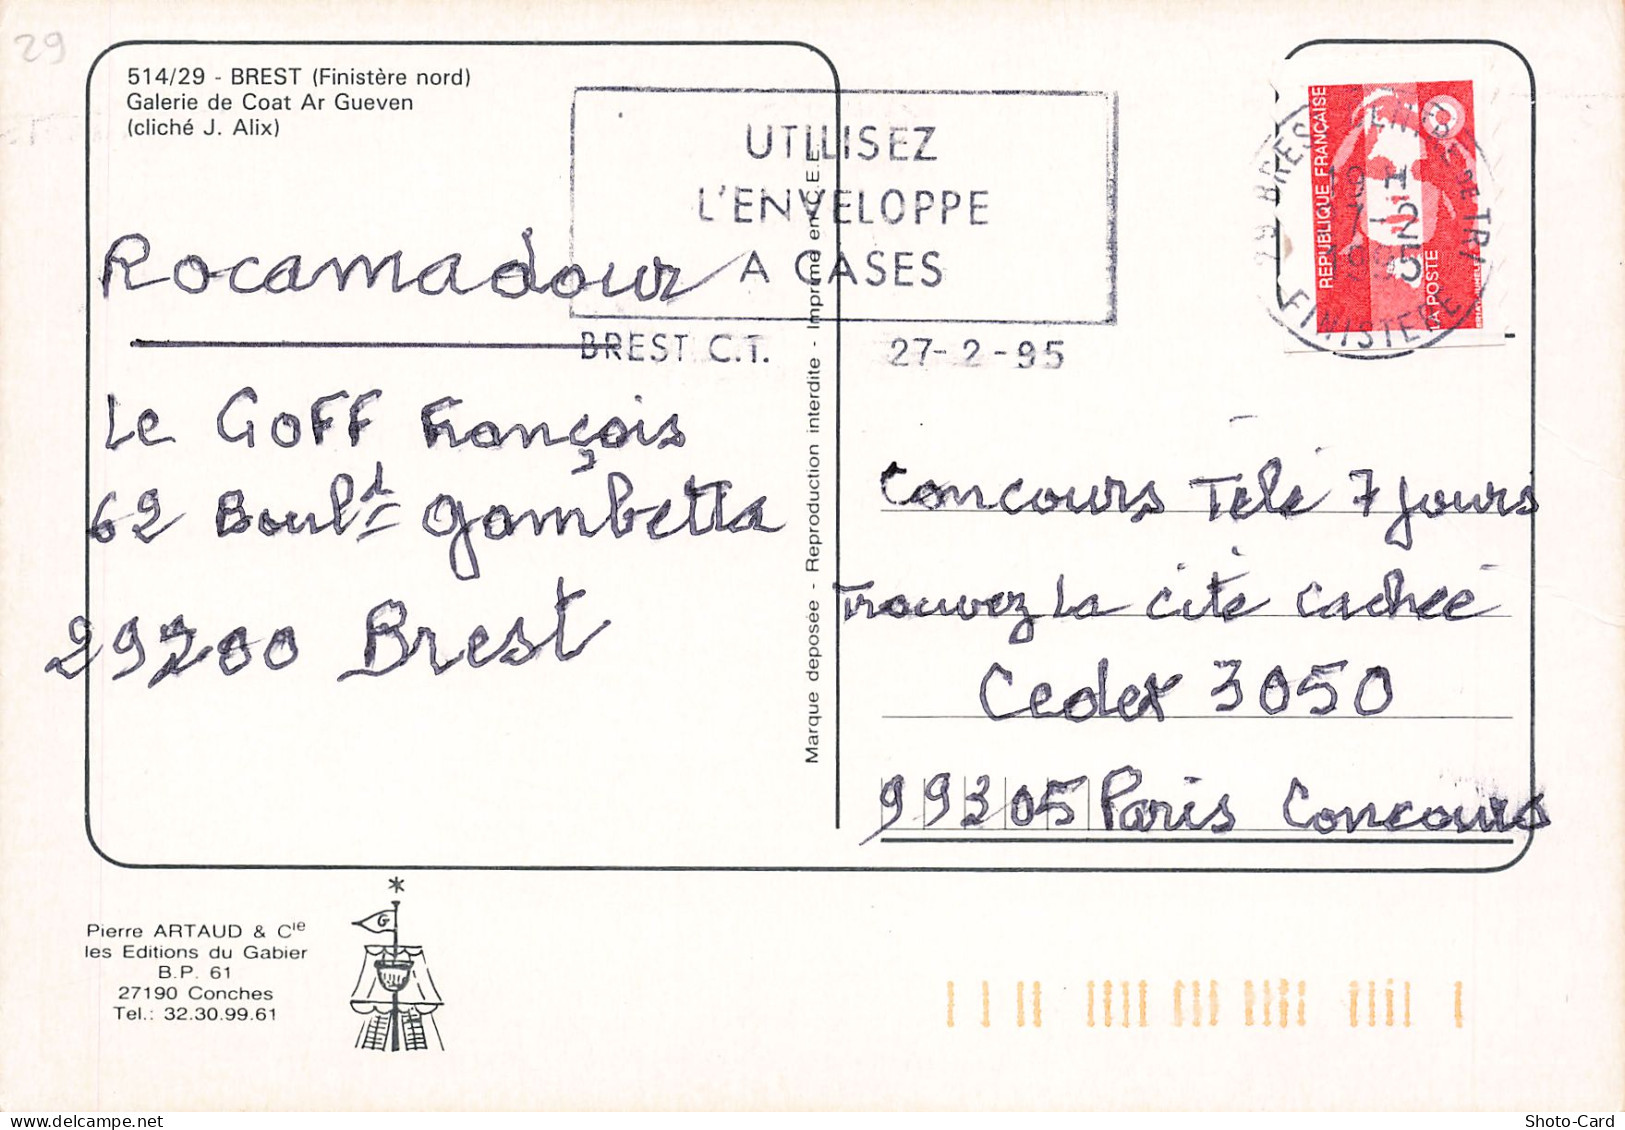 29
514/29 - BREST (Finistère nord)
Galerie de Coat Ar Gueven
(cliché J. Alix)
UTILISEZ
L'ENVELOPPE
A CASES
BREST C.T.
27-2-95
REPUBLIQUE FRANÇAISE
LA POSTE
29 BREST CENTRE DE TRI
FINISTERE
Rocamadour
Le GOFF François
62 Boul.d Gambetta
29200 Brest
Marque déposée - Reproduction interdite - Imprimé en C.E.E.
Concours Télé 7 jours
Trouvez la cité cachée
Cedex 3050
99305 Paris Concours
Pierre ARTAUD & Cie
les Editions du Gabier
B.P. 61
27190 Conches
Tel.: 32.30.99.61
G
Shoto-Card